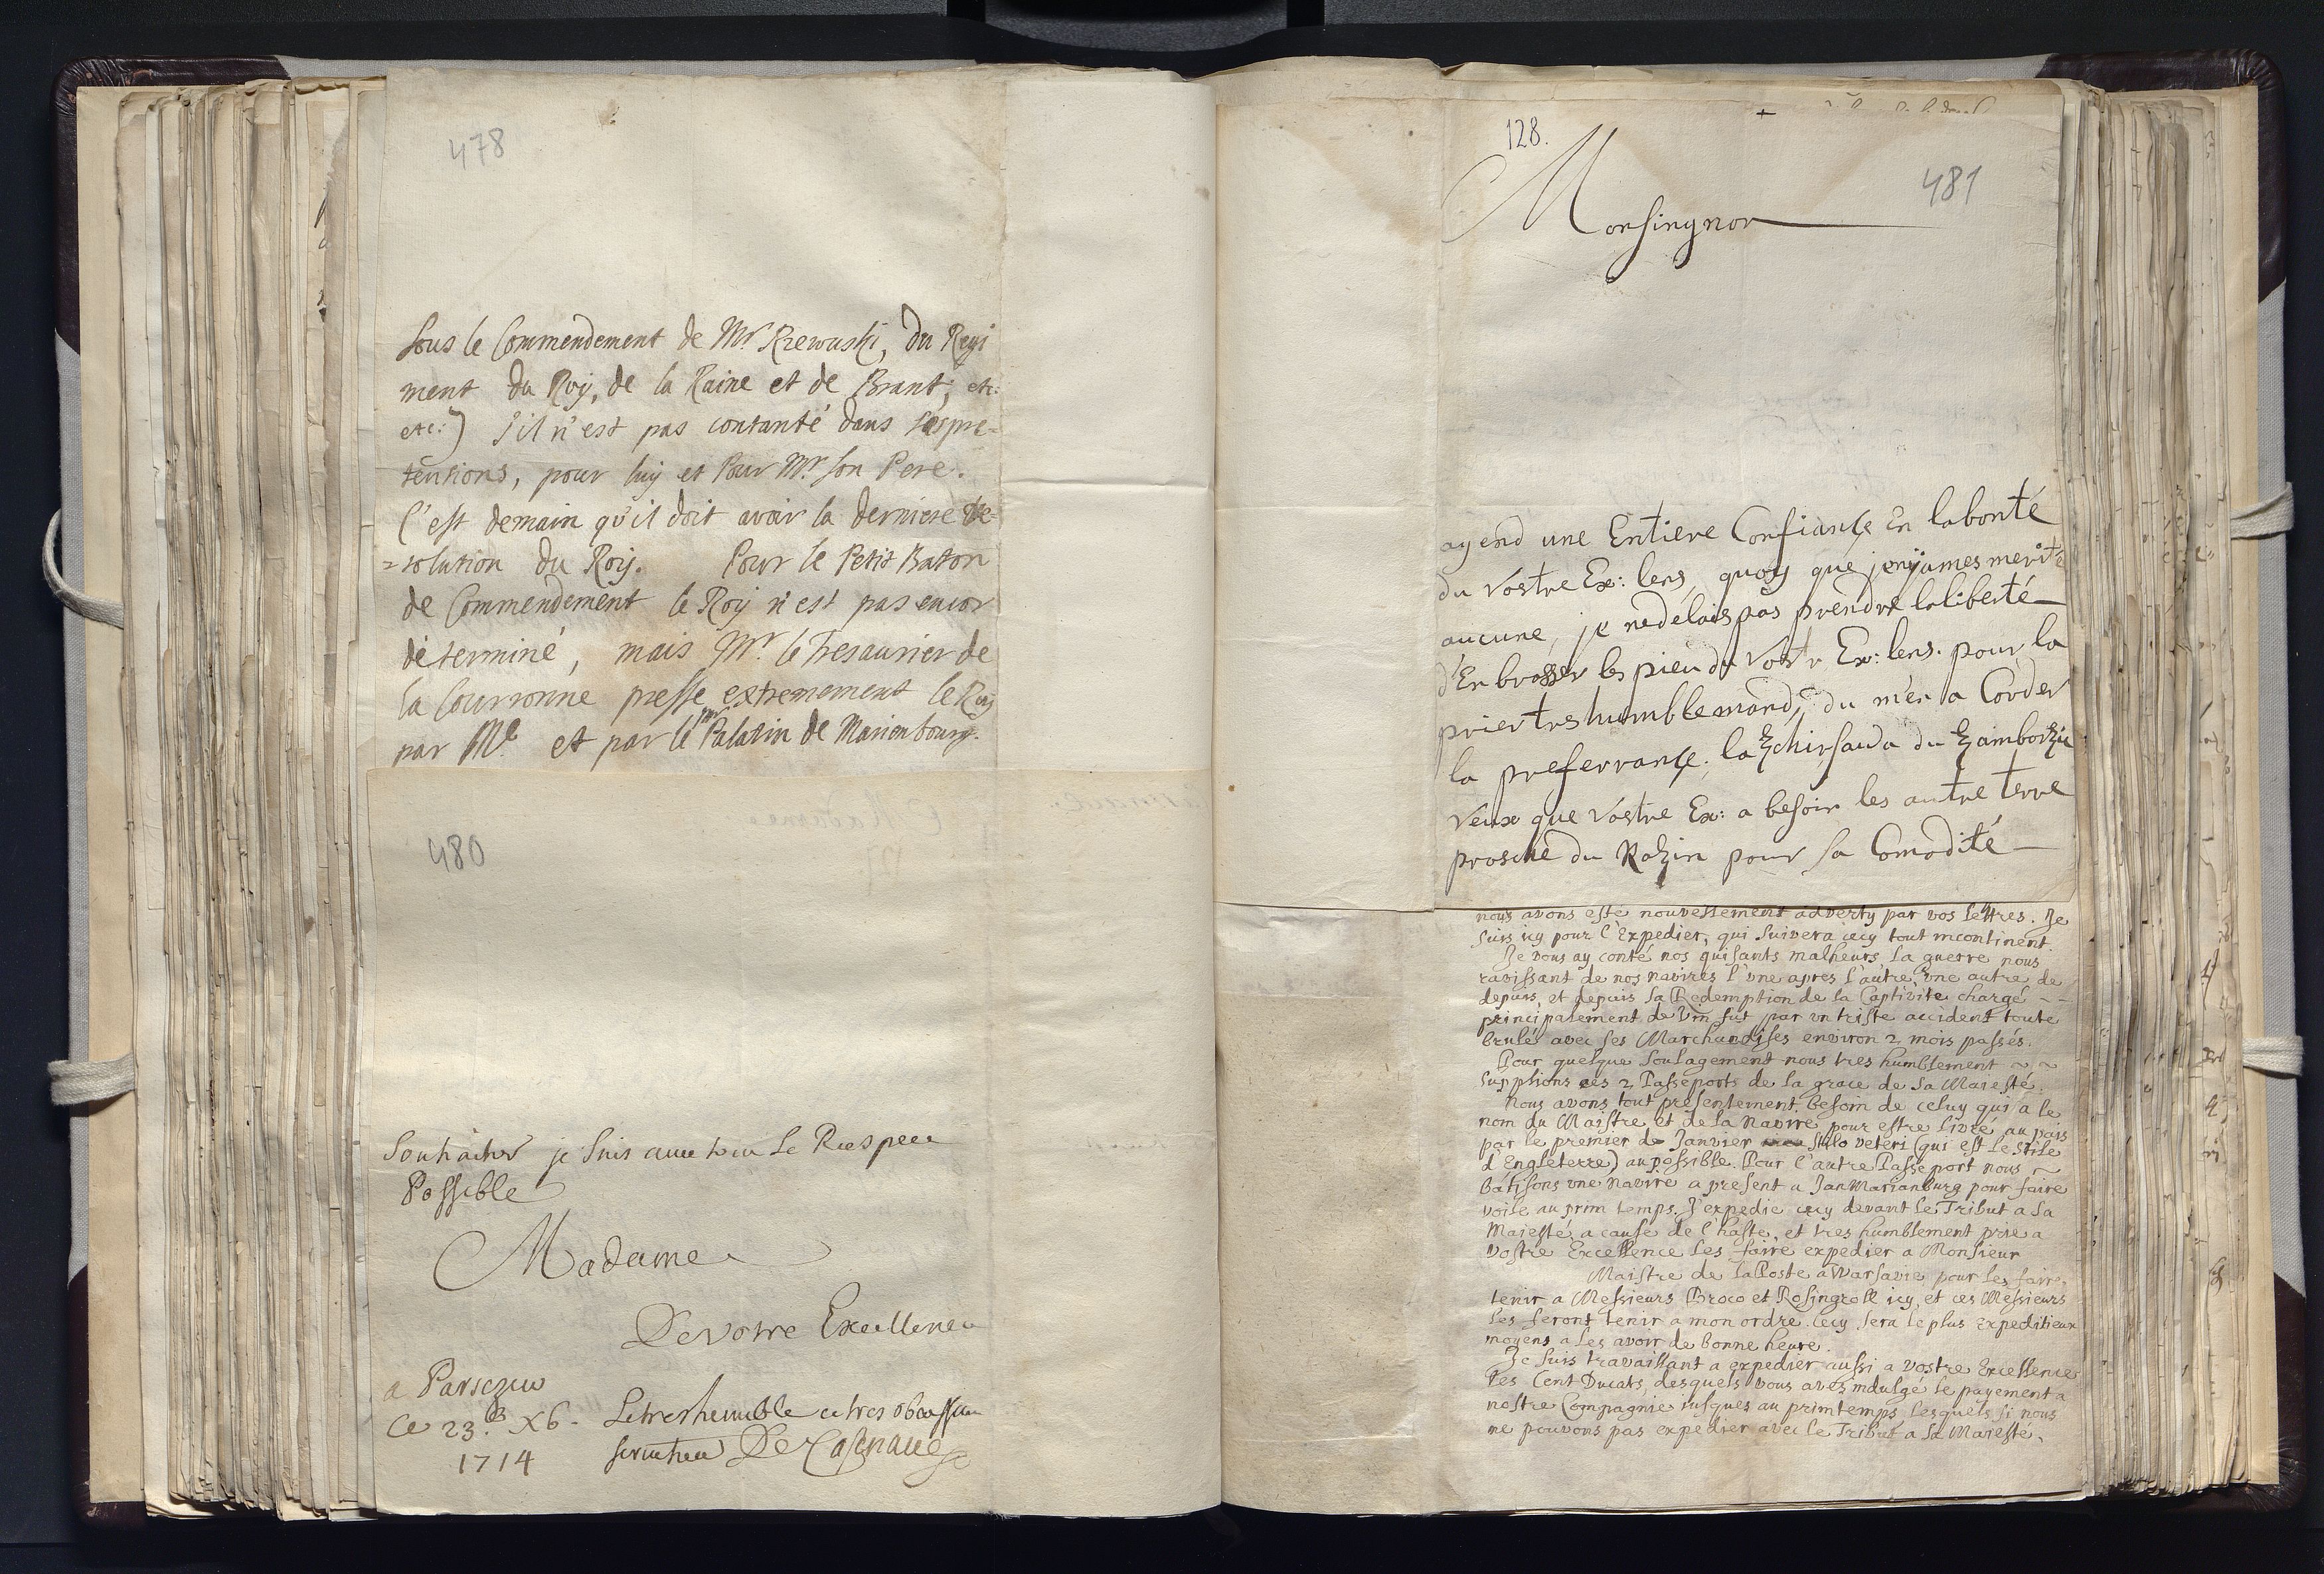 478
Sous le Commendement de Mr. Rzewuski, du Regi
ment du Roy, de la Raine et de Brant, etc:
etc:) s'il n'est pas contanté dans ses pre=
tensions, pour luy et Pour Mr. son Pere.
C'est demain qu'il doit avoir la derniere Re=
=solution du Roy. Pour le Petit Baton
de Commendement le Roy n'est pas encor
determiné, mais Mr. le Tresaurier de
la Courronne presse extremement le Roy
par Me et par le Palatin de Marienbourg.
480
Souhaiter je suis avec tou Le Respec
Possible
Madame
De votre Excellence
a Parsczew
Ce 23. Xb.
1714
Letres humble et tres obeissan
serviteur De
128.
481
Monsingnor
ayend une Entiere Confiançe En labonté
du Vostre Ex: lens, quoy que jenÿ james merité
aucune, je nedelais pas prendre laliberté
d'En brasser les pieu du Vostr Ex: lens. pour la
prier tres humblemand, du m'en a Corder
la preferrançe, la du
Veux que Vostre Ex: a besoin les autre terre
prosche du Rozin pour sa Comodité
nous avons esté nouvellement adverty par vos lettres. Je
suis icy pour l'Expedier, qui suivera icy tout incontinent.
Je vous ay conté nos quisants malheurs, la guerre nous
ravissant de nos navires l'vne apres l'autre, vne autre de
depuis, et depuis la Redemption de la Captivite chargé
principalement de Vin fut par vn triste accident toute
brulés avec ses Marchandises environ 2 mois passés.
Pour quelque soulagement nous tres humblement
supplions ces 2 Passeports de la grace de sa Maiesté.
Nous avons tout presentement besoin de celuy qui a le
nom du Maistre et de la Navire pour estre livré au pais
par le premier de Janvier stilo veteri (qui est le stile
d'Engleterre) au possible. Pour l'autre Passeport nous
bâtisons vne Navire a present a JanMarianburg pour faire
voile au prim temps. J'expedie cecy devant le Tribut a sa
Maiesté a cause de l'haste, et tres humblement prie a
Vostre Excellence les faire expedier a Monsieur
Maistre de la Poste a Warsavie pour les faire
tenir a Messieurs Broco et Rosingrell icy, et ces Messieurs
les feront tenir a mon ordre. Cecy sera le plus Expeditieux
moyens a les avoir de bonne heure.
Je suis travaillant a expedier aussi a Vostre Excellence
les Cent Ducats, desquels vous aves indulgé le payement a
nostre Compagnie iusques au primtemps, lesquels si nous
ne pouvons pas expedier avec le Tribut a sa Maiesté,